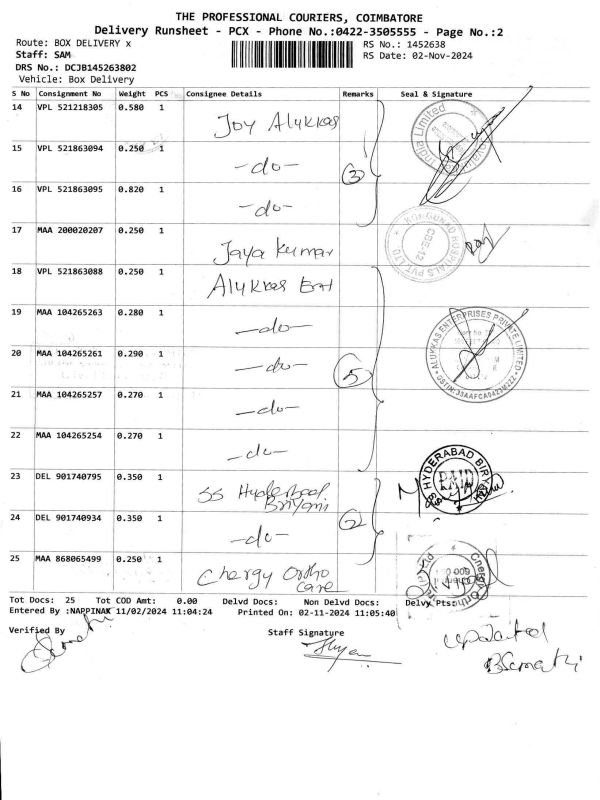 THE PROFESSIONAL COURIERS, COIMBATORE
Delivery Runsheet - PCX - Phone No.:0422-3505555 - Page No.:2
Route: BOX DELIVERY x
RS No.: 1452638
Staff: SAM
RS Date: 02-Nov-2024
DRS No.: DCJB145263802
Vehicle: Box Delivery
S No Consignment No Weight PCS Consignee Details Remarks Seal & Signature
14 VPL 521218305 0.580 1 Joy Alukkas
15 VPL 521863094 0.250 1 -do- 3
16 VPL 521863095 0.820 1 -do-
17 MAA 200020207 0.250 1 Jaya Kumar
18 VPL 521863088 0.250 1 Alukkas Ent
19 MAA 104265263 0.280 1 -do-
20 MAA 104265261 0.290 1 -do- 5
21 MAA 104265257 0.270 1 -do-
22 MAA 104265254 0.270 1 -do-
23 DEL 901740795 0.350 1 SS Hyderbad Briyani
24 DEL 901740934 0.350 1 -do- 2
25 MAA 868065499 0.250 1 Chergy Ortho care
India Limited
KONGUNAD HOSPITALS PVT LTD
CBE-12
ALUKKAS ENTERPRISES PRIVATE LIMITED
GSTIN:33AAFCA9423M2ZZ
SS HYDERABAD BIRYANI
PAID
Tot Docs: 25 Tot COD Amt: 0.00 Delvd Docs: Non Delvd Docs: Delvy Pts:
Entered By :NAPPINAK 11/02/2024 11:04:24 Printed On: 02-11-2024 11:05:40
Verified By
Staff Signature
updated
BSumathi